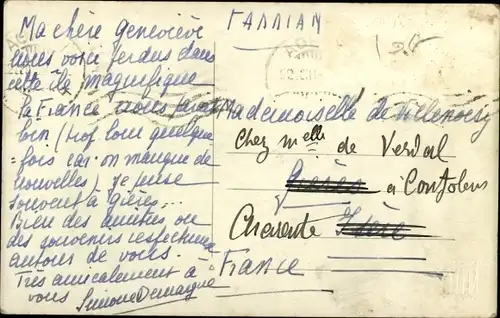 Ma chère Geneviève
nous voici perdus dans
cette île magnifique
la France nous paraît
loin (trop loin quelque
= fois car on manque de
nouvelles) je pense
souvent à gières...
Bien des amitiés ou
des souvenirs respectueux
autour de vous.
Très amicalement à
vous Simone Demaigne
ΓΑΛΛΙΑΝ
Mademoiselle de
Chez melle de Verdal
Gières à Confolens
Charente Isère
France